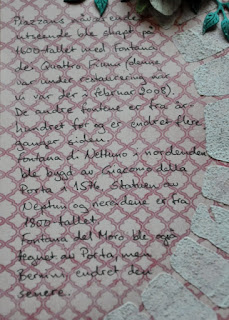 Piazzans nåværende
utseende ble skapt på
1600-tallet med Fontana
dei Quattro Fiumi (denne
var under restaurering når
vi var der i februar 2008).
De andre fontene er fra år-
hundret før og er endret flere
ganger siden.
Fontana di Nettuno i nordenden
ble bygd av Giacomo della
Porta i 1576, Statuen av
Neptun og nereidene er fra
1800-tallet.
Fontana del Moro ble også
tegnet av Porta, men
Bernini endret den
senere..